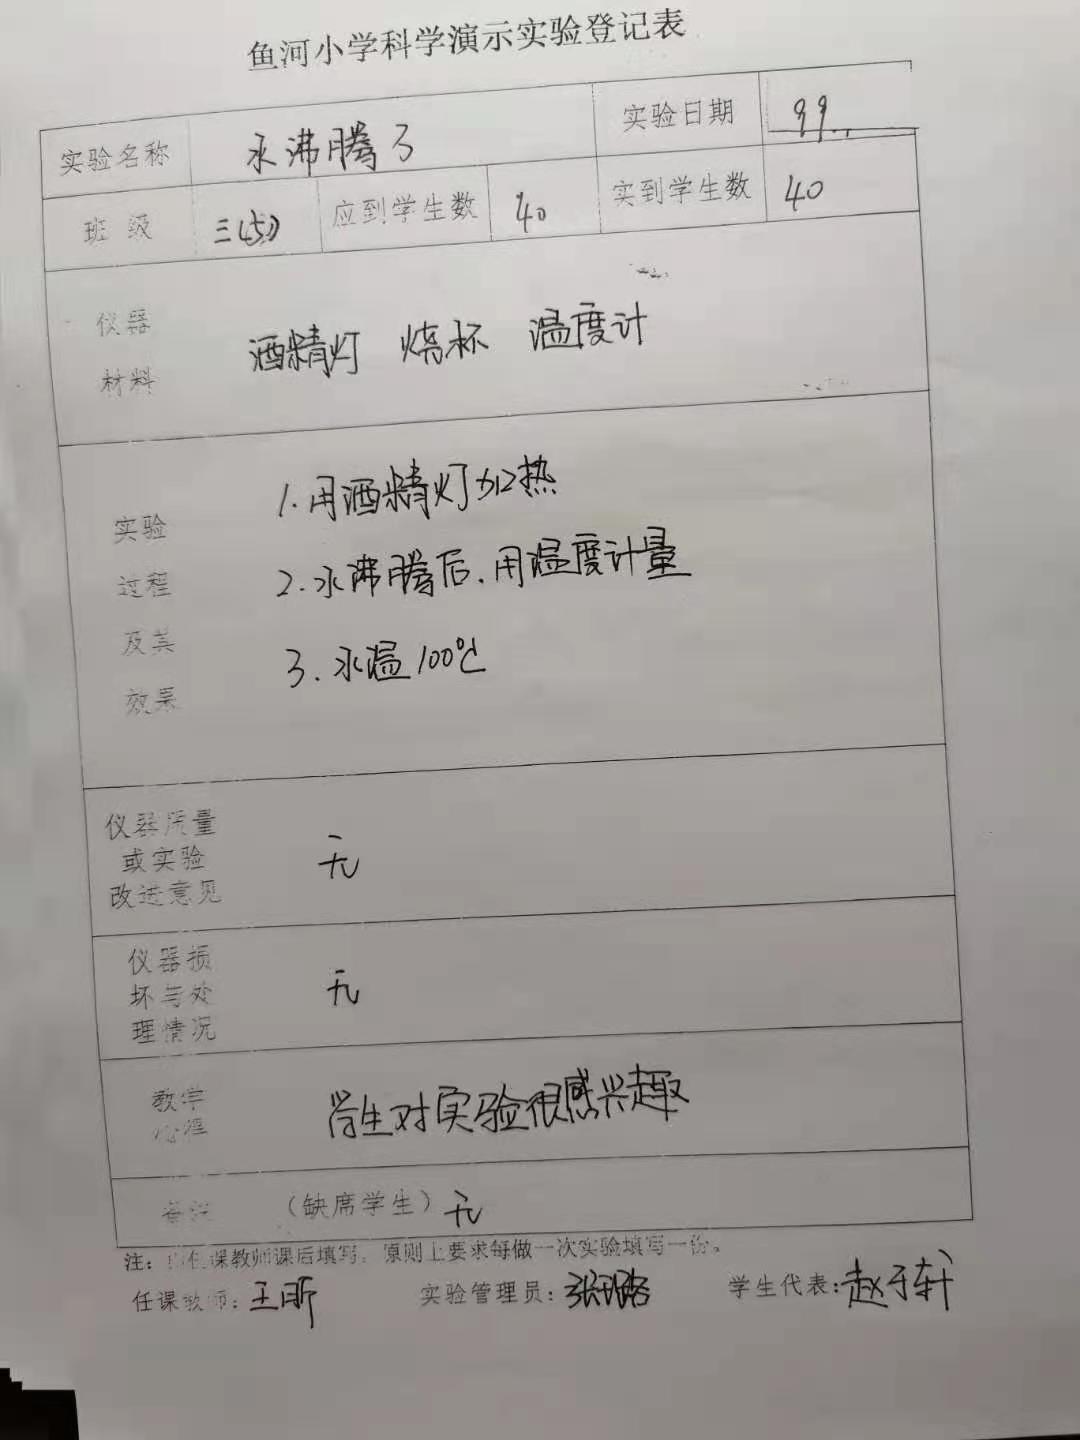 鱼河小学科学演示实验登记表
实验名称 水沸腾了 实验日期 9.9.
班级 三(5) 应到学生数 40 实到学生数 40
仪器
材料
酒精灯 烧杯 温度计
实验
过程
及其
效果
1.用酒精灯加热
2.水沸腾后.用温度计量
3.水温100℃
仪器质量
或实验
改进意见
无
仪器损
坏与处
理情况
无
教学
心得
学生对实验很感兴趣
备注 (缺席学生)无
注: 任课教师课后填写,原则上要求每做一次实验填写一份。
任课教师:王昕 实验管理员:张 学生代表:赵子轩